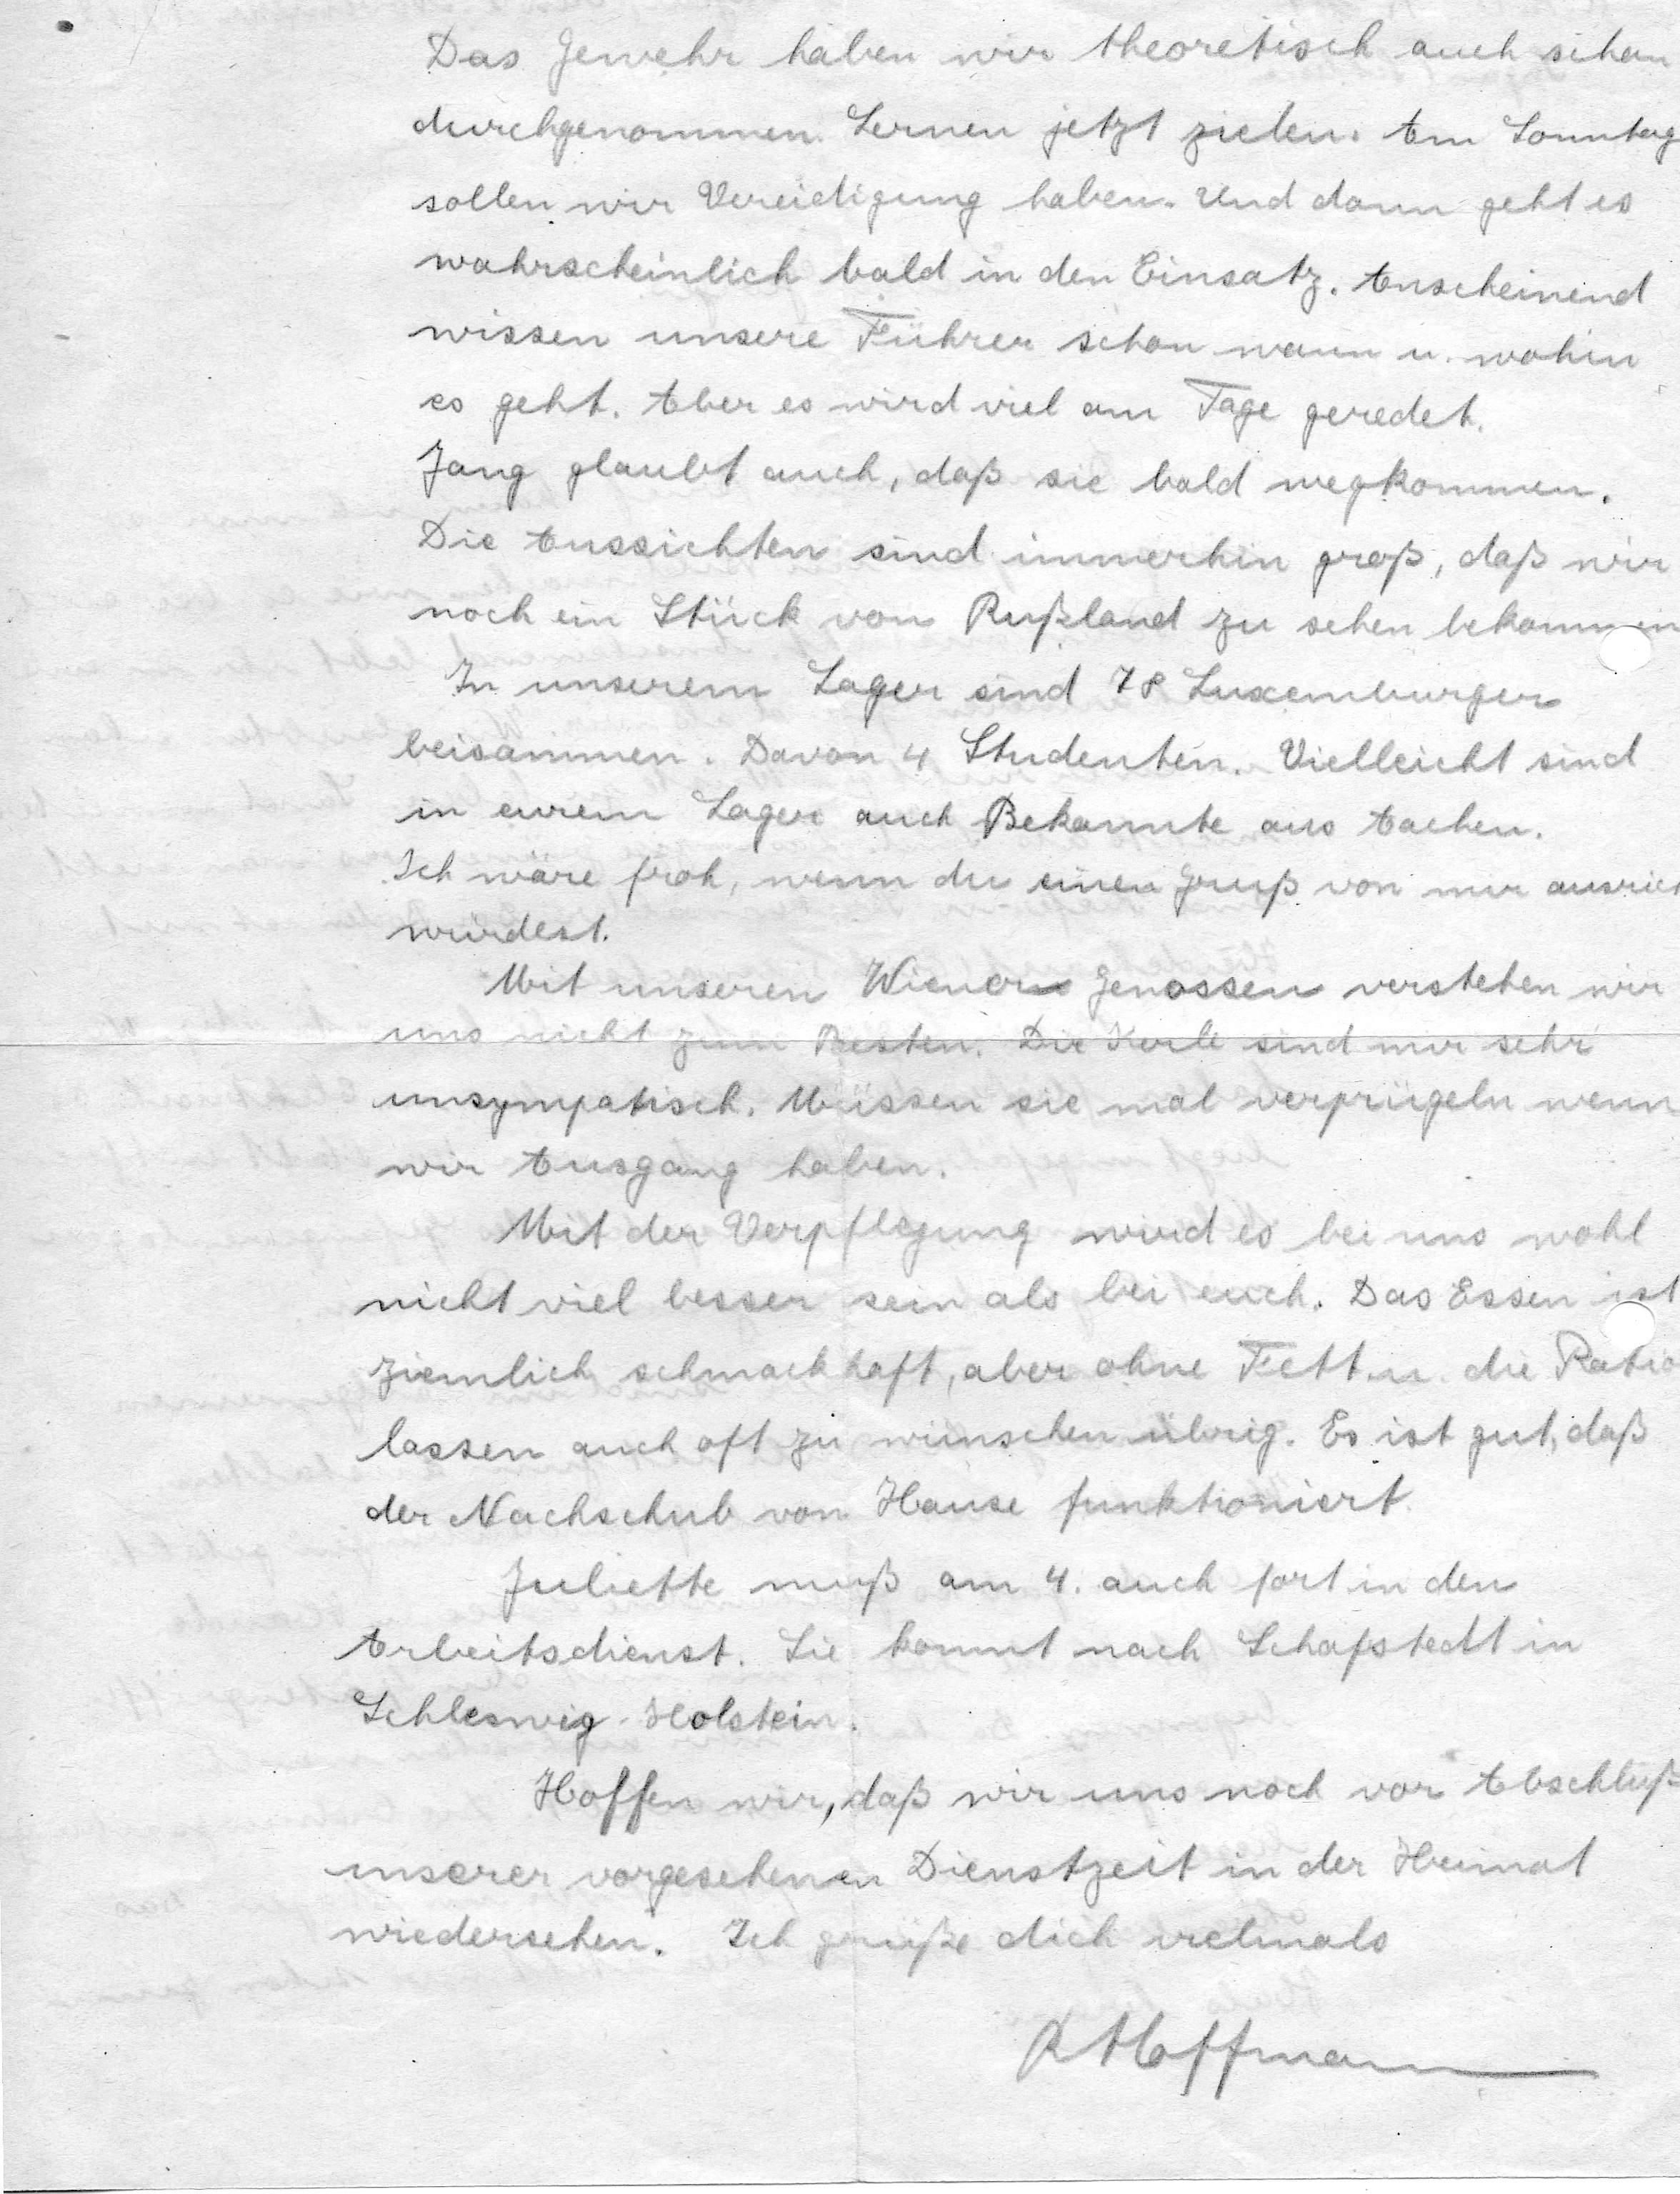 Das Gewehr haben wir theoretisch auch schon
durchgenommen. Lernen jetzt zielen. Am Sonntag
sollen wir Vereidigung haben. Und dann geht es
wahrscheinlich bald in den Einsatz. Anscheinend
wissen unsere Führer schon wann u. wohin
es geht. Aber es wird viel am Tage geredet.
Jang glaubt auch, daß sie bald wegkommen.
Die Aussichten sind immerhin groß, daß wir
noch ein Stück von Rußland zu sehen bekommen
In unserem Lager sind 78 Luxemburger
beisammen. Davon 4 Studenten. Vielleicht sind
in eurem Lager auch Bekannte aus Aachen.
Ich wäre froh, wenn du einen Gruß von mir ausrich
würdest.
Mit unseren Wiener Genossen verstehen wir
uns nicht zum Besten. Die Kerle sind mir sehr
unsympatisch. Müssen sie mal verprügeln wenn
wir Ausgang haben.
Mit der Verpflegung wird es bei uns wohl
nicht viel besser sein als bei euch. Das Essen ist
ziemlich schmackhaft, aber ohne Fett u. die Ratio
lassen auch oft zu wünschen übrig. Es ist gut, daß
der Nachschub von Hause funktioniert.
Juliette muß am 4. auch fort in den
Arbeitsdienst. Sie kommt nach Schafstedt in
Schleswig-Holstein.
Hoffen wir, daß wir uns noch vor Abschluß
unserer vorgesehenen Dienstzeit in der Heimat
wiedersehen. Ich grüße dich vielmals
R Hoffmann